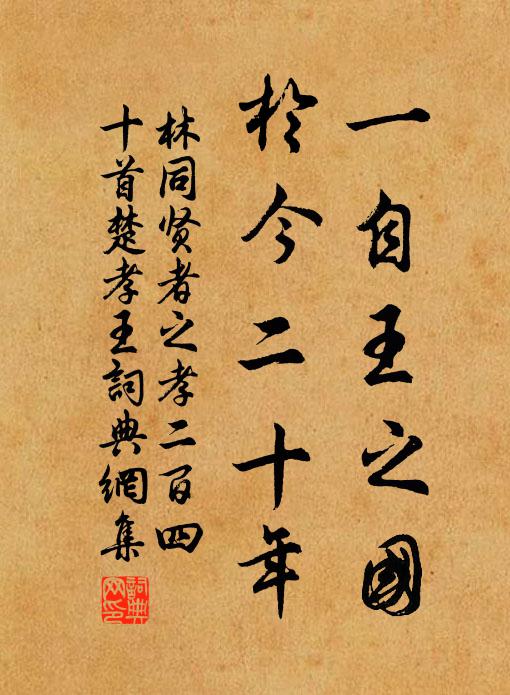 一自王之國
於今二十年
林同贤者之孝二百四
十首楚孝王詞典網集
詞典网印